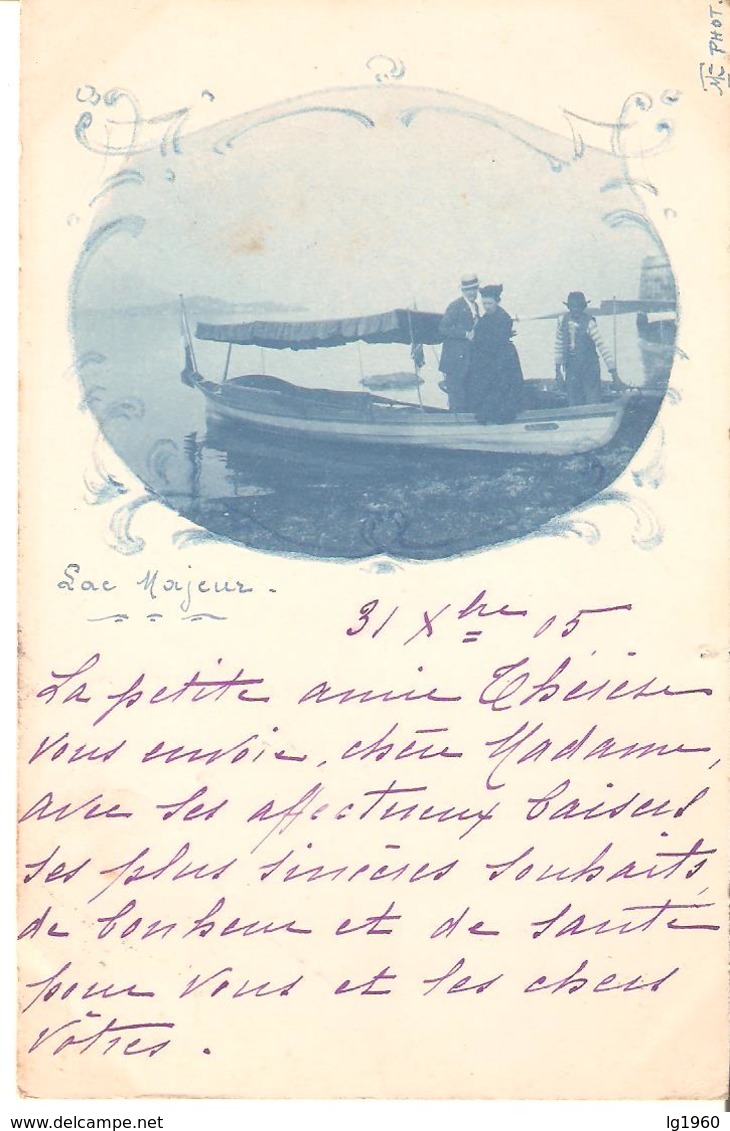 Mce PHOT.
Lac Majeur.
31 Xbre 05
La petite amie Thérèse
vous envoie, chère Madame,
avec ses affectueux baisers
ses plus sincères souhaits
de bonheur et de santé
pour vous et les chers
vôtres.
lg1960